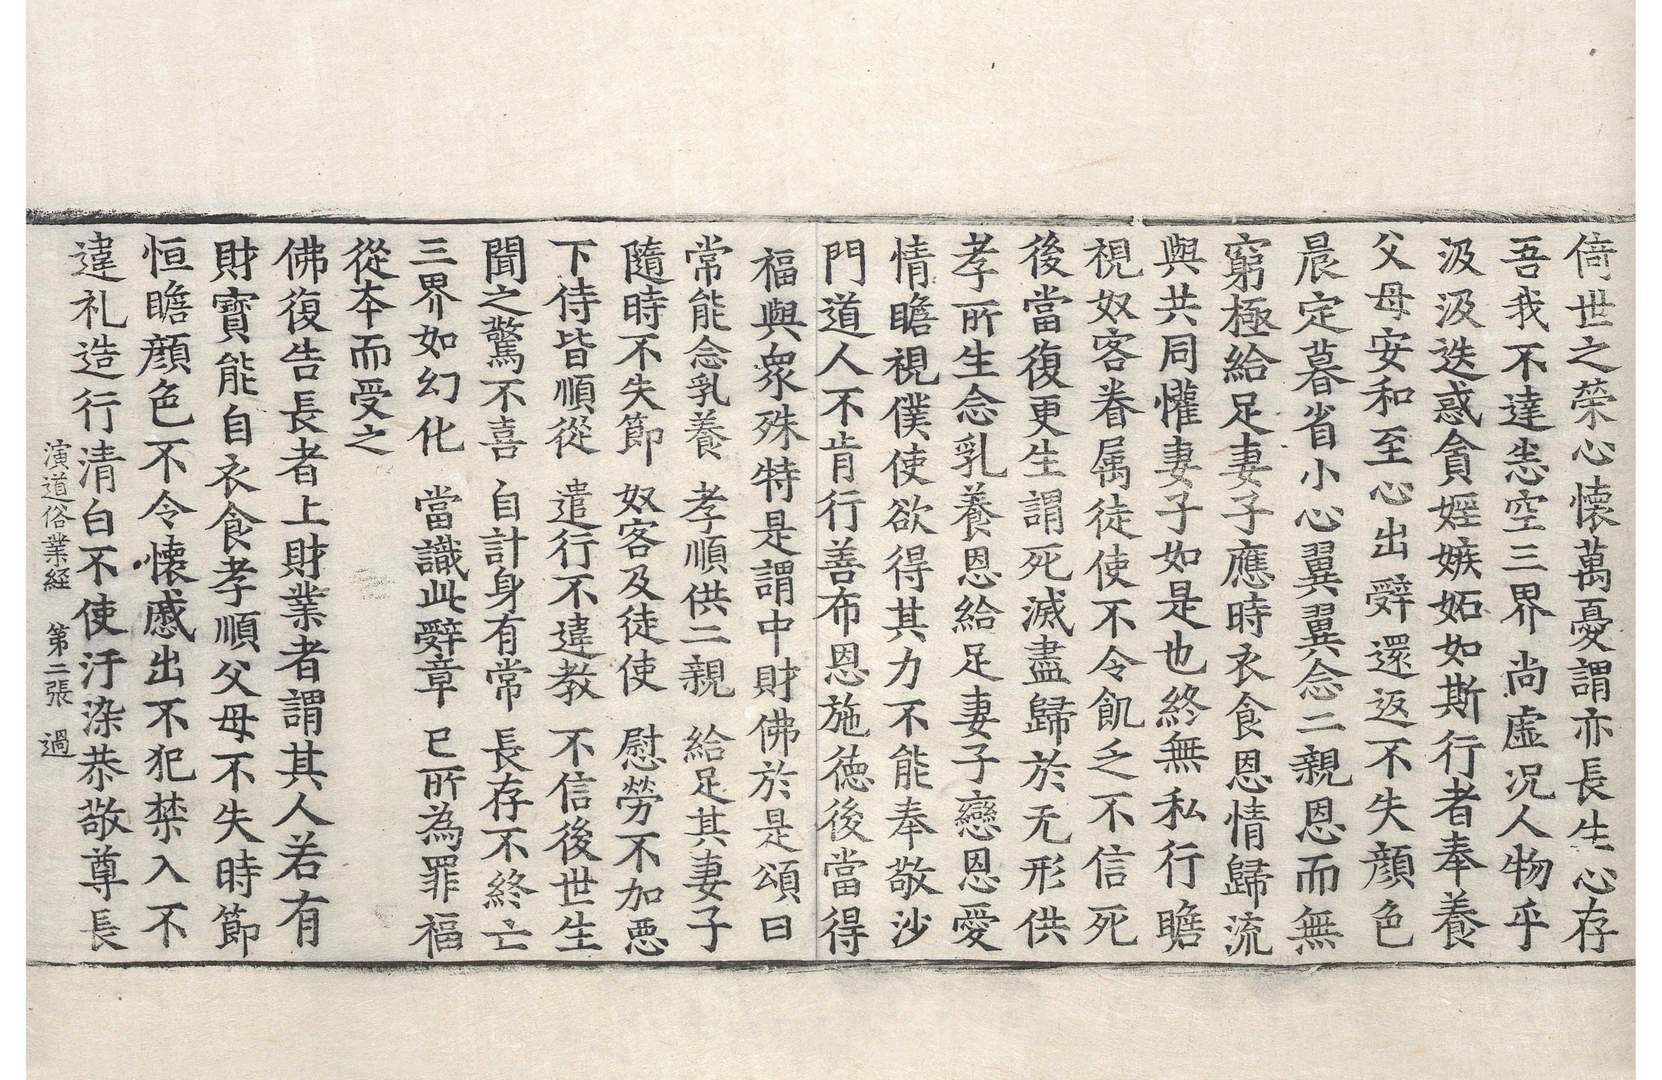 倚世之榮心懷萬憂謂亦長生心存
吾我不達恙空三界尚虛况人物乎
汲汲迭惑貪婬嫉妬如斯行者奉養
父母安和至心出辝還返不失顔色
晨定暮省小心翼翼念二親恩而無
窮極給足妻子應時衣食恩情歸流
與共同懽妻子如是也終無私行瞻
視奴客眷属徒使不令飢乏不信死
後當復更生謂死滅盡歸於无形供
孝所生念乳養恩給足妻子戀恩愛
情瞻視僕使欲得其力不能奉敬沙
門道人不肯行善布恩施德後當得
福與衆殊特是謂中財佛於是頌曰
常能念乳養 孝順供二親 給足其妻子
隨時不失節 奴客及徒使 慰勞不加惡
下侍皆順從 遣行不違教 不信後世生
聞之驚不喜 自計身有常 長存不終亡
三界如幻化 當識此辝章 已所為罪福
從本而受之
佛復告長者上財業者謂其人若有
財寶能自衣食孝順父母不失時節
恒瞻顔色不令懷慼出不犯禁入不
違礼造行清白不使汙染恭敬尊長
演道俗業経 第二張 過